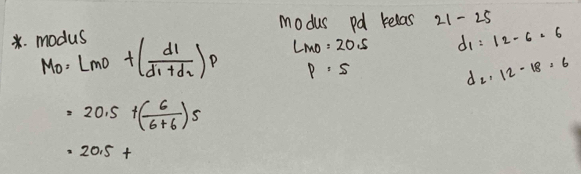 *. modus
Mo = Lmo + (d1 / d1 + d2) p
= 20.5 + (6 / 6+6) 5
= 20.5 +
modus pd kelas 21 - 25
Lmo = 20.5
p = 5
d1 = 12 - 6 = 6
d2 = 12 - 18 = 6